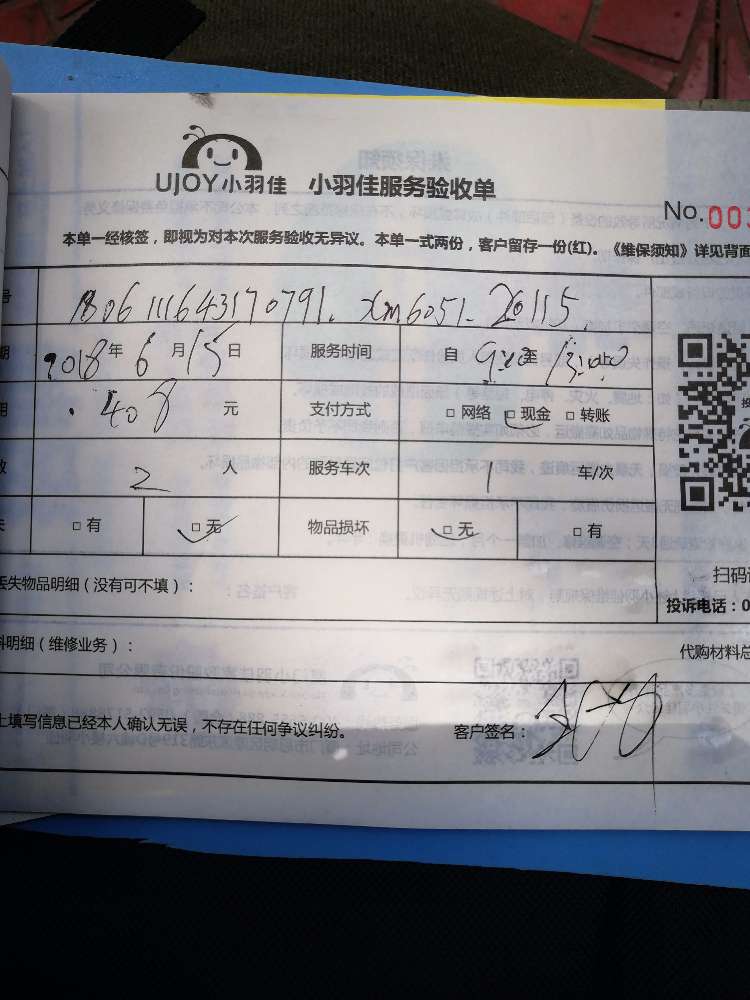 UJOY小羽佳 小羽佳服务验收单
No.003
本单一经核签，即视为对本次服务验收无异议。本单一式两份，客户留存一份(红)。《维保须知》详见背面
号 1806111643170791. xm6051-20115
期 2018年6月15日 服务时间 自 9:00至13:00止
用 408 元 支付方式 □网络 □现金 □转账
数 2 人 服务车次 1 车/次
失 □有 □无 物品损坏 □无 □有
丢失物品明细（没有可不填）：
扫码
投诉电话：0
料明细（维修业务）：
代购材料总
上填写信息已经本人确认无误，不存在任何争议纠纷。 客户签名：